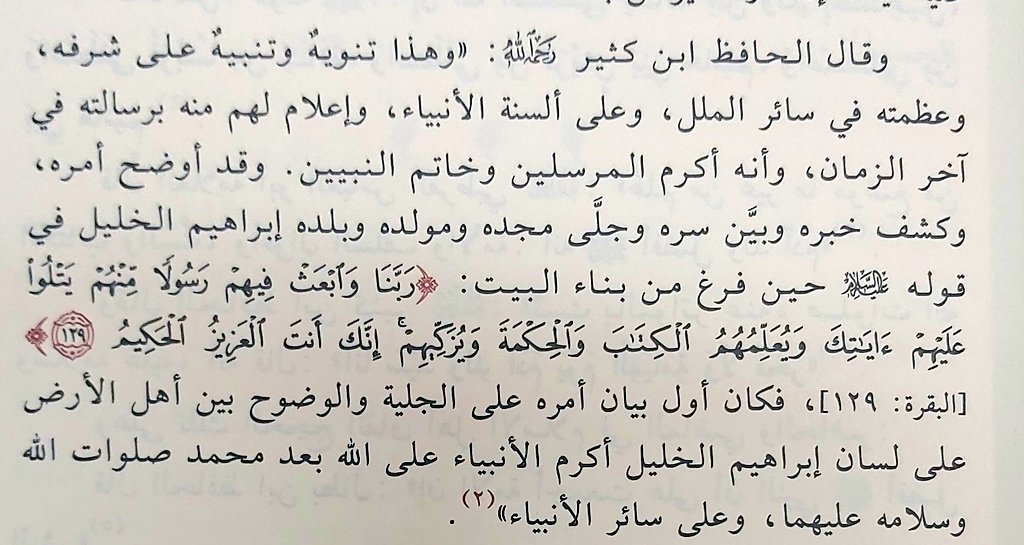 وقال الحافظ ابن كثير رحمه الله: «وهذا تنويهٌ وتنبيهٌ على شرفه،
وعظمته في سائر الملل، وعلى ألسنة الأنبياء، وإعلام لهم منه برسالته في
آخر الزمان، وأنه أكرم المرسلين وخاتم النبيين. وقد أوضح أمره،
وكشف خبره وبيَّن سره وجلَّى مجده ومولده وبلده إبراهيم الخليل في
قوله عليه السلام حين فرغ من بناء البيت: ﴿رَبَّنَا وَٱبْعَثْ فِيهِمْ رَسُولًا مِّنْهُمْ يَتْلُوا۟
عَلَيْهِمْ ءَايَـٰتِكَ وَيُعَلِّمُهُمُ ٱلْكِتَـٰبَ وَٱلْحِكْمَةَ وَيُزَكِّيهِمْ ۚ إِنَّكَ أَنتَ ٱلْعَزِيزُ ٱلْحَكِيمُ ١٢٩﴾
[البقرة: ١٢٩]، فكان أول بيان أمره على الجلية والوضوح بين أهل الأرض
على لسان إبراهيم الخليل أكرم الأنبياء على الله بعد محمد صلوات الله
وسلامه عليهما، وعلى سائر الأنبياء»(٢).